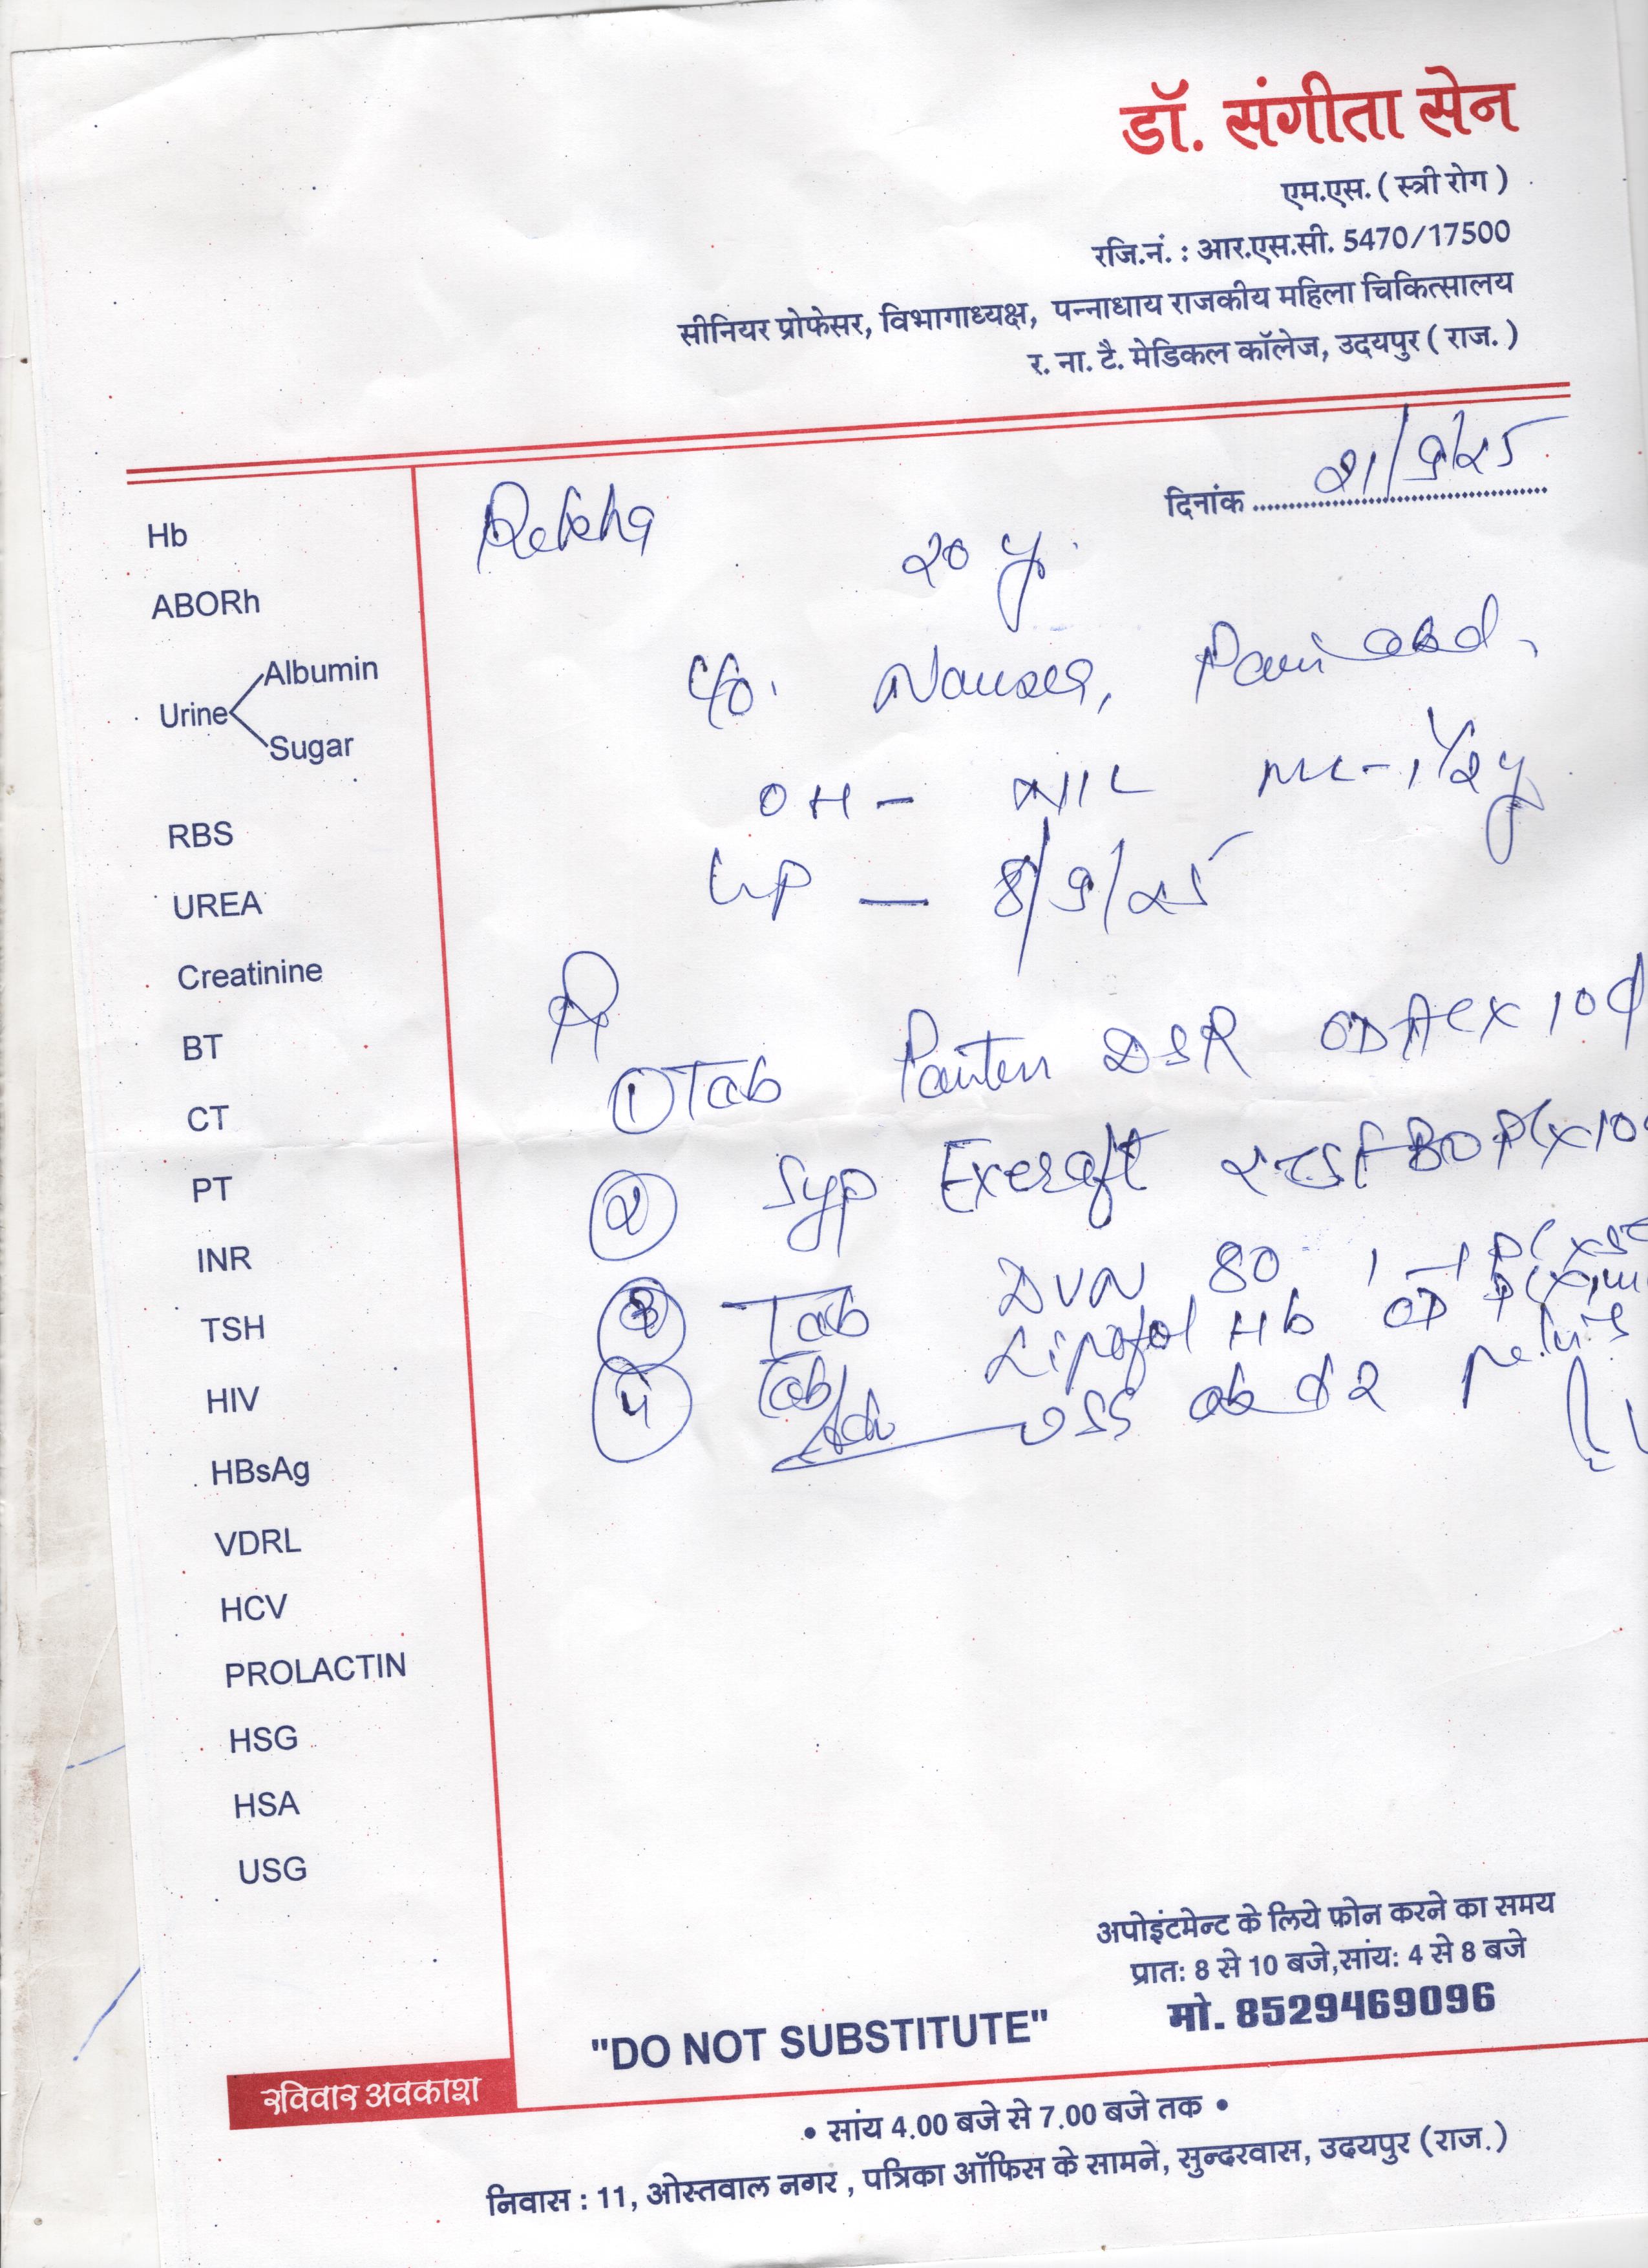 डॉ. संगीता सेन
एम.एस. ( स्त्री रोग )
रजि.नं. : आर.एस.सी. 5470/17500
सीनियर प्रोफेसर, विभागाध्यक्ष, पन्नाधाय राजकीय महिला चिकित्सालय
र. ना. टै. मेडिकल कॉलेज, उदयपुर ( राज. )
दिनांक
Rekha
20 y.
c/o. Nausea, Pain abd.
OH - NIL ML - 1 1/2 y
LMP — 8/9/25
Rx
① Tab DSR OD AC X 10 d
② Syp BD PC X 10
③ Tab 80
④ Tab Hb OD
Adv
Hb
ABORh
Urine Albumin
Sugar
RBS
UREA
Creatinine
BT
CT
PT
INR
TSH
HIV
HBsAg
VDRL
HCV
PROLACTIN
HSG
HSA
USG
अपोइंटमेन्ट के लिये फ़ोन करने का समय
प्रात: 8 से 10 बजे,सांय: 4 से 8 बजे
मो. 8529469096
"DO NOT SUBSTITUTE"
रविवार अवकाश
• सांय 4.00 बजे से 7.00 बजे तक •
निवास : 11, ओस्तवाल नगर , पत्रिका ऑफिस के सामने, सुन्दरवास, उदयपुर (राज.)